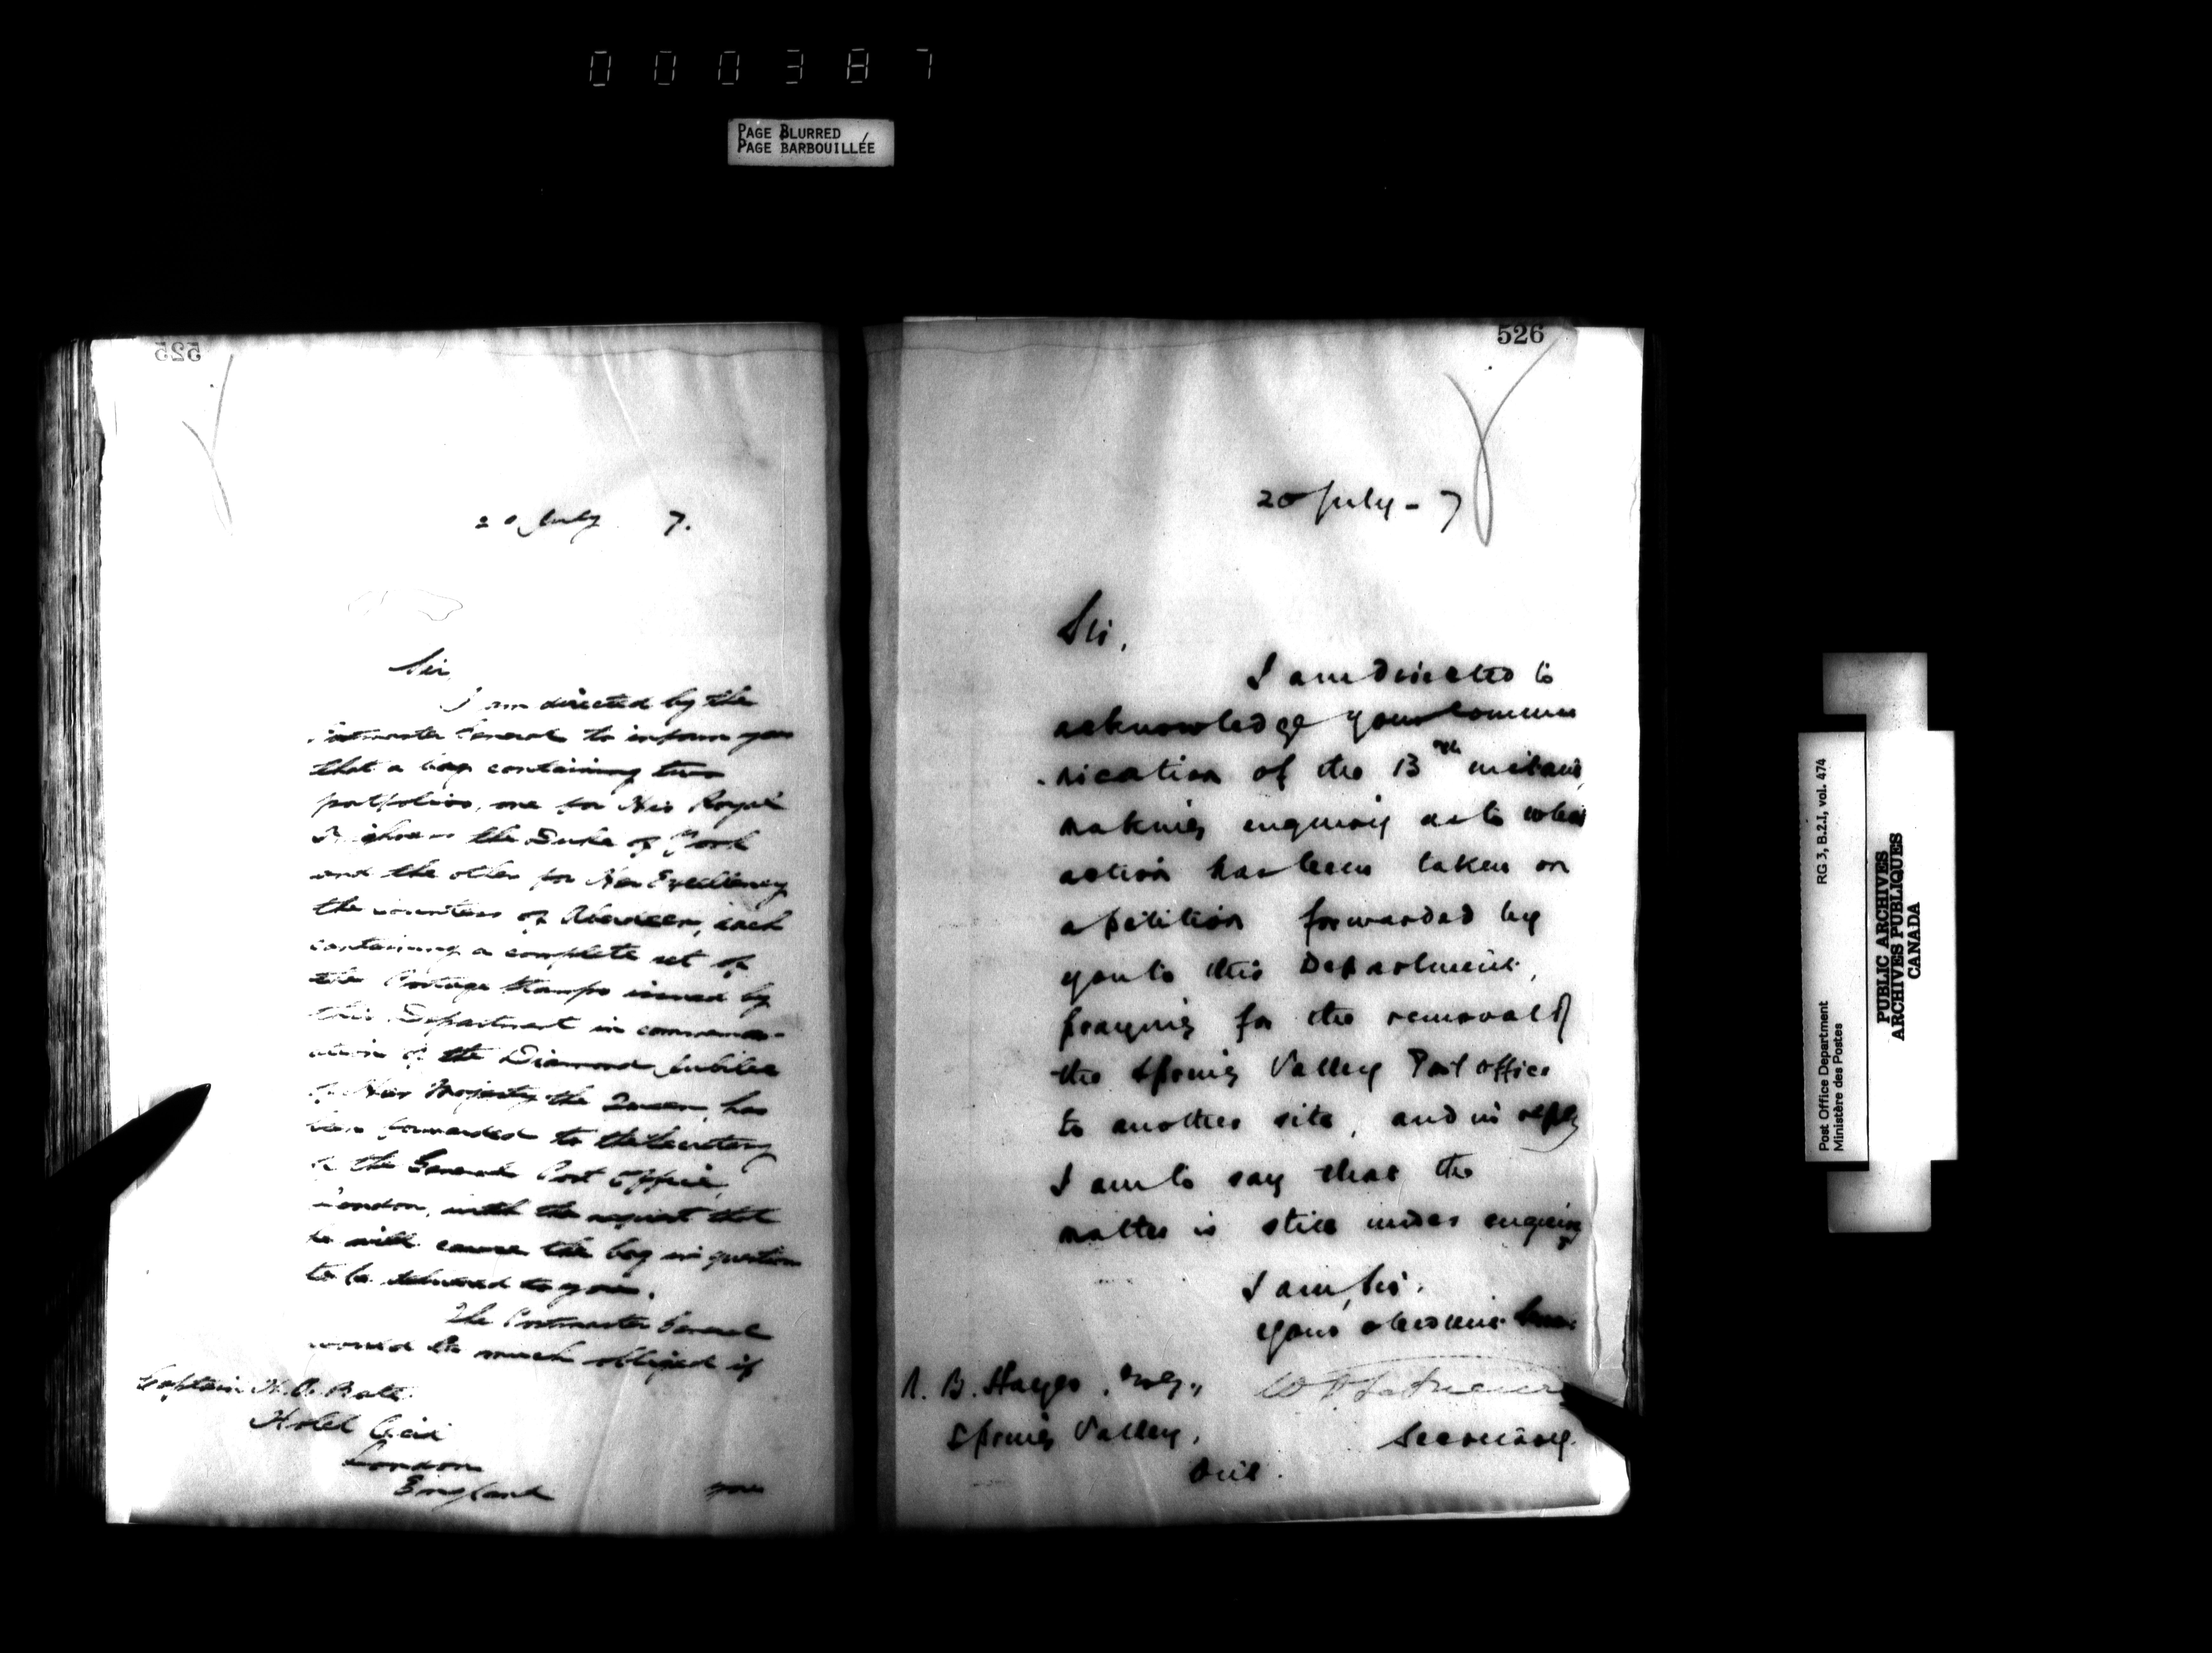 000387
PAGE BLURRED
PAGE BARBOUILLÉE
525
20 July 7.
Sir,
I am directed by the
Postmaster General to inform you
that a bag containing two
portfolios, one for His Royal
Highness the Duke of York
and the other for Her Excellency
the Countess of Aberdeen, each
containing a complete set of
the Postage Stamps issued by
this Department in commemor-
ation of the Diamond Jubilee
of Her Majesty the Queen, has
been forwarded to the Secretary
of the General Post Office,
London, with the request that
he will cause the bag in question
to be delivered to you.
The Postmaster General
would be much obliged if
Captain H. A. Bate.
Hotel Cecil
London
England
you
526
20 July - 7
Sir,
I am directed to
acknowledge your commu
-nication of the 13th instant,
making enquiry as to what
action has been taken on
a petition forwarded by
you to this Department,
praying for the removal of
the Spring Valley Post Office
to another site, and in reply
I am to say that the
matter is still under enquiry
I am, Sir,
Your obedient
B. Hayes, Esq.,
Spring Valley,
Ont.
Secretary.
Post Office Department
Ministère des Postes
RG 3, B.2.I, vol. 474
PUBLIC ARCHIVES
ARCHIVES PUBLIQUES
CANADA